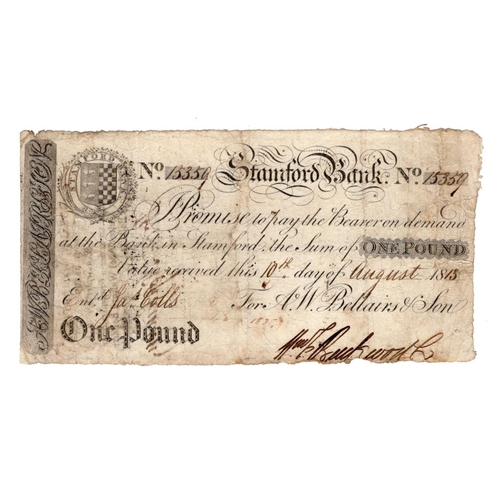 STAMFORD
No. 15359 Stamford Bank. No. 15359
I Promise to pay the Bearer on demand
at the Bank in Stamford, the Sum of ONE POUND
Value received this 10th day of August 1813
Entd. Jas. Cotts For A. W. Bellairs & Son
One Pound